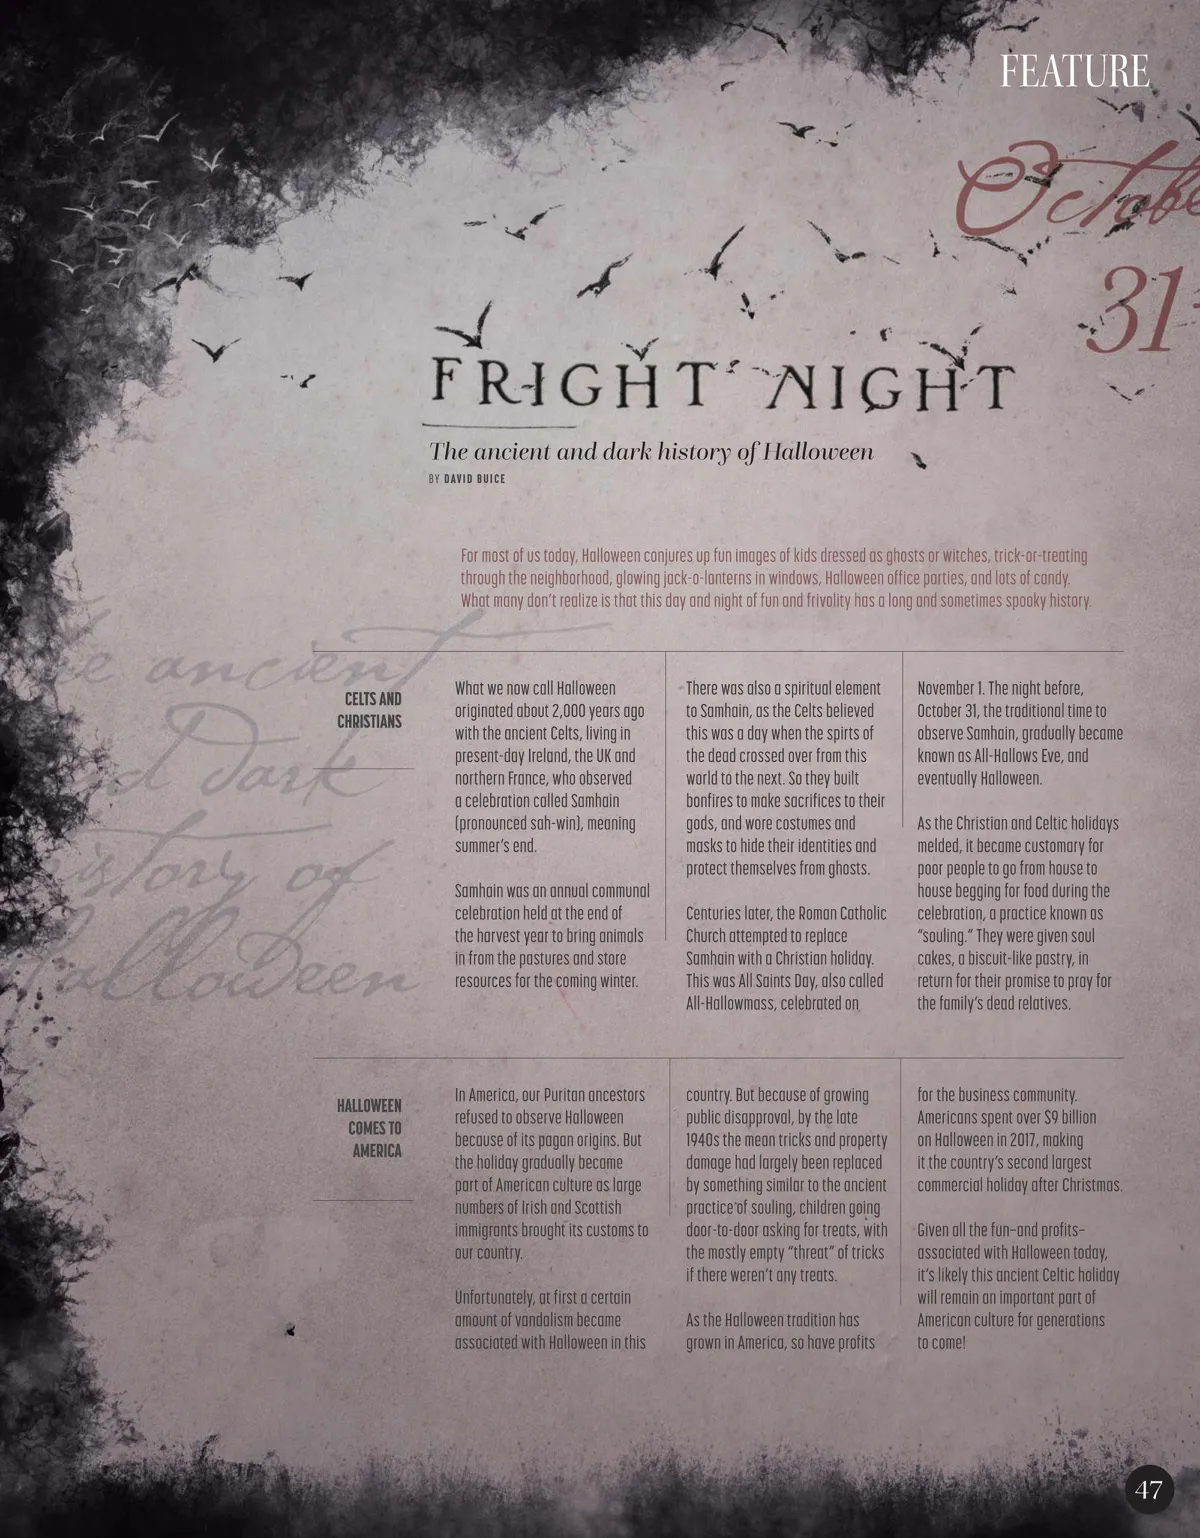 FEATURE
October
31
FRIGHT NIGHT
The ancient and dark history of Halloween
BY DAVID BUICE
For most of us today, Halloween conjures up fun images of kids dressed as ghosts or witches, trick-or-treating
through the neighborhood, glowing jack-o-lanterns in windows, Halloween office parties, and lots of candy.
What many don't realize is that this day and night of fun and frivolity has a long and sometimes spooky history.
the ancient
and dark
history of
halloween
CELTS AND
CHRISTIANS
What we now call Halloween
originated about 2,000 years ago
with the ancient Celts, living in
present-day Ireland, the UK and
northern France, who observed
a celebration called Samhain
(pronounced sah-win), meaning
summer's end.
Samhain was an annual communal
celebration held at the end of
the harvest year to bring animals
in from the pastures and store
resources for the coming winter.
There was also a spiritual element
to Samhain, as the Celts believed
this was a day when the spirts of
the dead crossed over from this
world to the next. So they built
bonfires to make sacrifices to their
gods, and wore costumes and
masks to hide their identities and
protect themselves from ghosts.
Centuries later, the Roman Catholic
Church attempted to replace
Samhain with a Christian holiday.
This was All Saints Day, also called
All-Hallowmass, celebrated on
November 1. The night before,
October 31, the traditional time to
observe Samhain, gradually became
known as All-Hallows Eve, and
eventually Halloween.
As the Christian and Celtic holidays
melded, it became customary for
poor people to go from house to
house begging for food during the
celebration, a practice known as
“souling.” They were given soul
cakes, a biscuit-like pastry, in
return for their promise to pray for
the family's dead relatives.
HALLOWEEN
COMES TO
AMERICA
In America, our Puritan ancestors
refused to observe Halloween
because of its pagan origins. But
the holiday gradually became
part of American culture as large
numbers of Irish and Scottish
immigrants brought its customs to
our country.
Unfortunately, at first a certain
amount of vandalism became
associated with Halloween in this
country. But because of growing
public disapproval, by the late
1940s the mean tricks and property
damage had largely been replaced
by something similar to the ancient
practice of souling, children going
door-to-door asking for treats, with
the mostly empty “threat” of tricks
if there weren't any treats.
As the Halloween tradition has
grown in America, so have profits
for the business community.
Americans spent over $9 billion
on Halloween in 2017, making
it the country's second largest
commercial holiday after Christmas.
Given all the fun–and profits–
associated with Halloween today,
it's likely this ancient Celtic holiday
will remain an important part of
American culture for generations
to come!
47